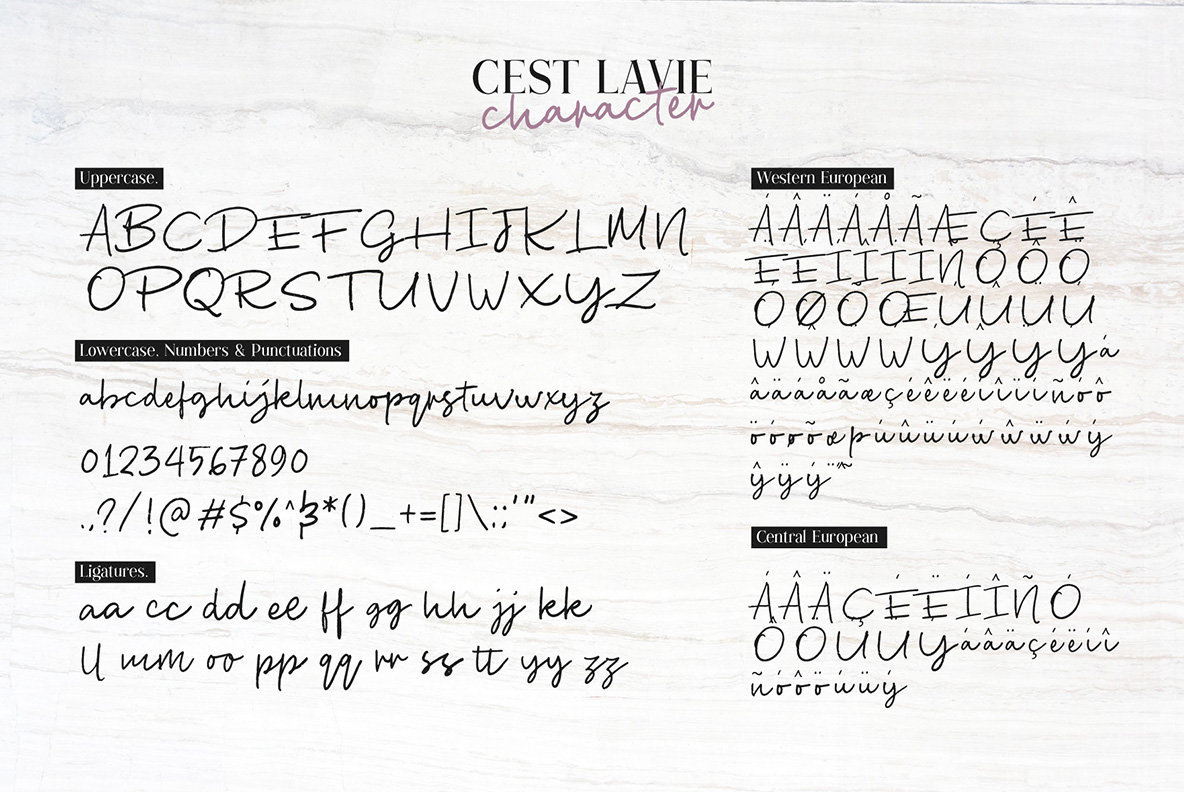 CEST LAVIE
character
Uppercase.
ABCDEFGHIJKLMN
OPQRSTUVWXYZ
Lowercase, Numbers & Punctuations
abcdefghijklmnopqrstuvwxyz
01234567890
.,?/!@#$%^&*()_+=[]\:;'"<>
Ligatures.
aa cc dd ee ff gg hh jj kk
ll mm oo pp qq rr ss tt yy zz
Western European
ÁÂÄÀÅÃÆÇÉÊ
ËÈÍÎÏÌÑÓÔÖ
ÒØÕŒÚÛÜÙ
ẂŴẄẀÝŶŸỲá
âäàåãæçéêëèíîïìñóô
öòøõœþúûüùẃŵẅẁý
ŷÿỳ
Central European
ÁÂÄÇÉËÍÎŇÓ
ÔÖÚÜÝáâäçéëíî
ňóôöúüý